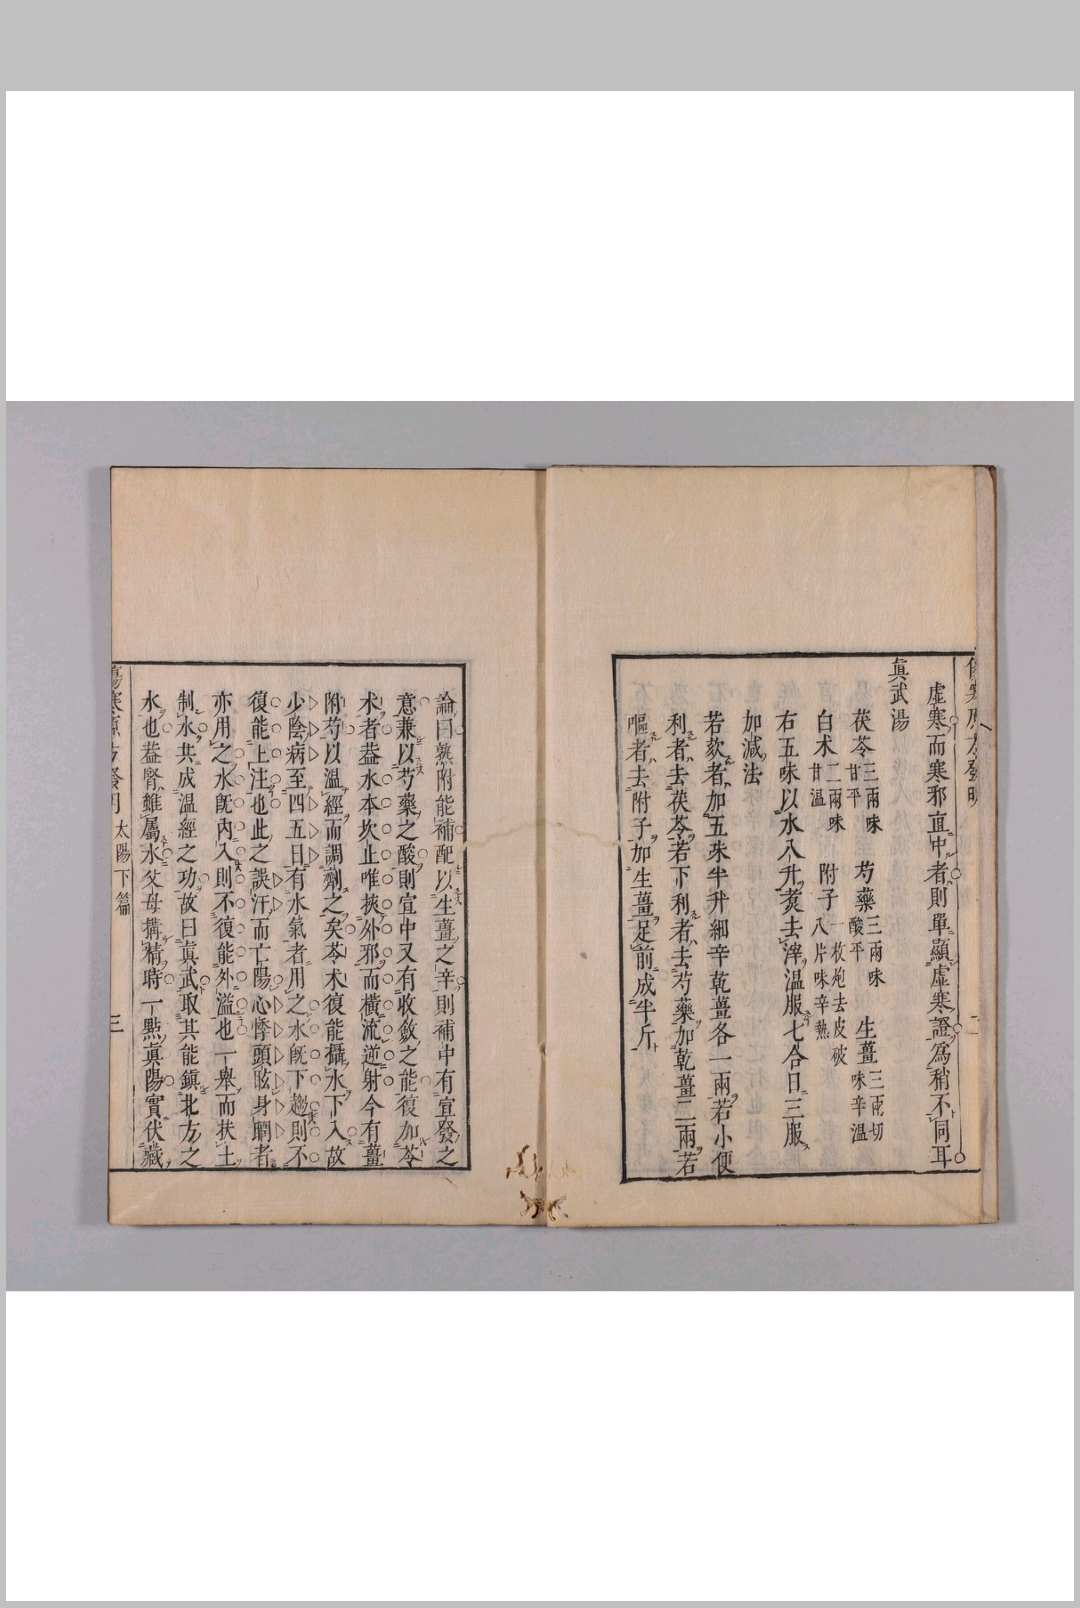 虛寒而寒邪直中者則單顯虛寒證爲稍不同耳
眞武湯
茯苓三兩味甘平 芍藥三兩味酸平 生薑三兩切味辛溫
白朮二兩味甘溫 附子一枚炮去皮破八片味辛熱
右五味以水八升煑去滓溫服七合日三服
加減法
若欬者加五味半升細辛乾薑各一兩若小便
利者去茯苓若下利者去芍藥加乾薑二兩若
嘔者去附子加生薑足前成半斤
論曰熱附能補配以生薑之辛則補中有宣發之
意兼以芍藥之酸則宣中又有收斂之能復加苓
朮者葢水本坎止唯挾外邪而橫流逆射今有薑
附芍以溫經而調劑之矣苓朮復能攝水下入故
少陰病至四五日有水氣者用之水旣下趨則不
復能上注也此之誤汗而亡陽心悸頭眩身瞤者
亦用之水旣內入則不復能外溢也一舉而扶土
制水共成溫經之功故曰眞武取其能鎭北方之
水也葢腎雖屬水父母搆精時一點眞陽實伏藏
傷寒原方發明 太陽下篇 三